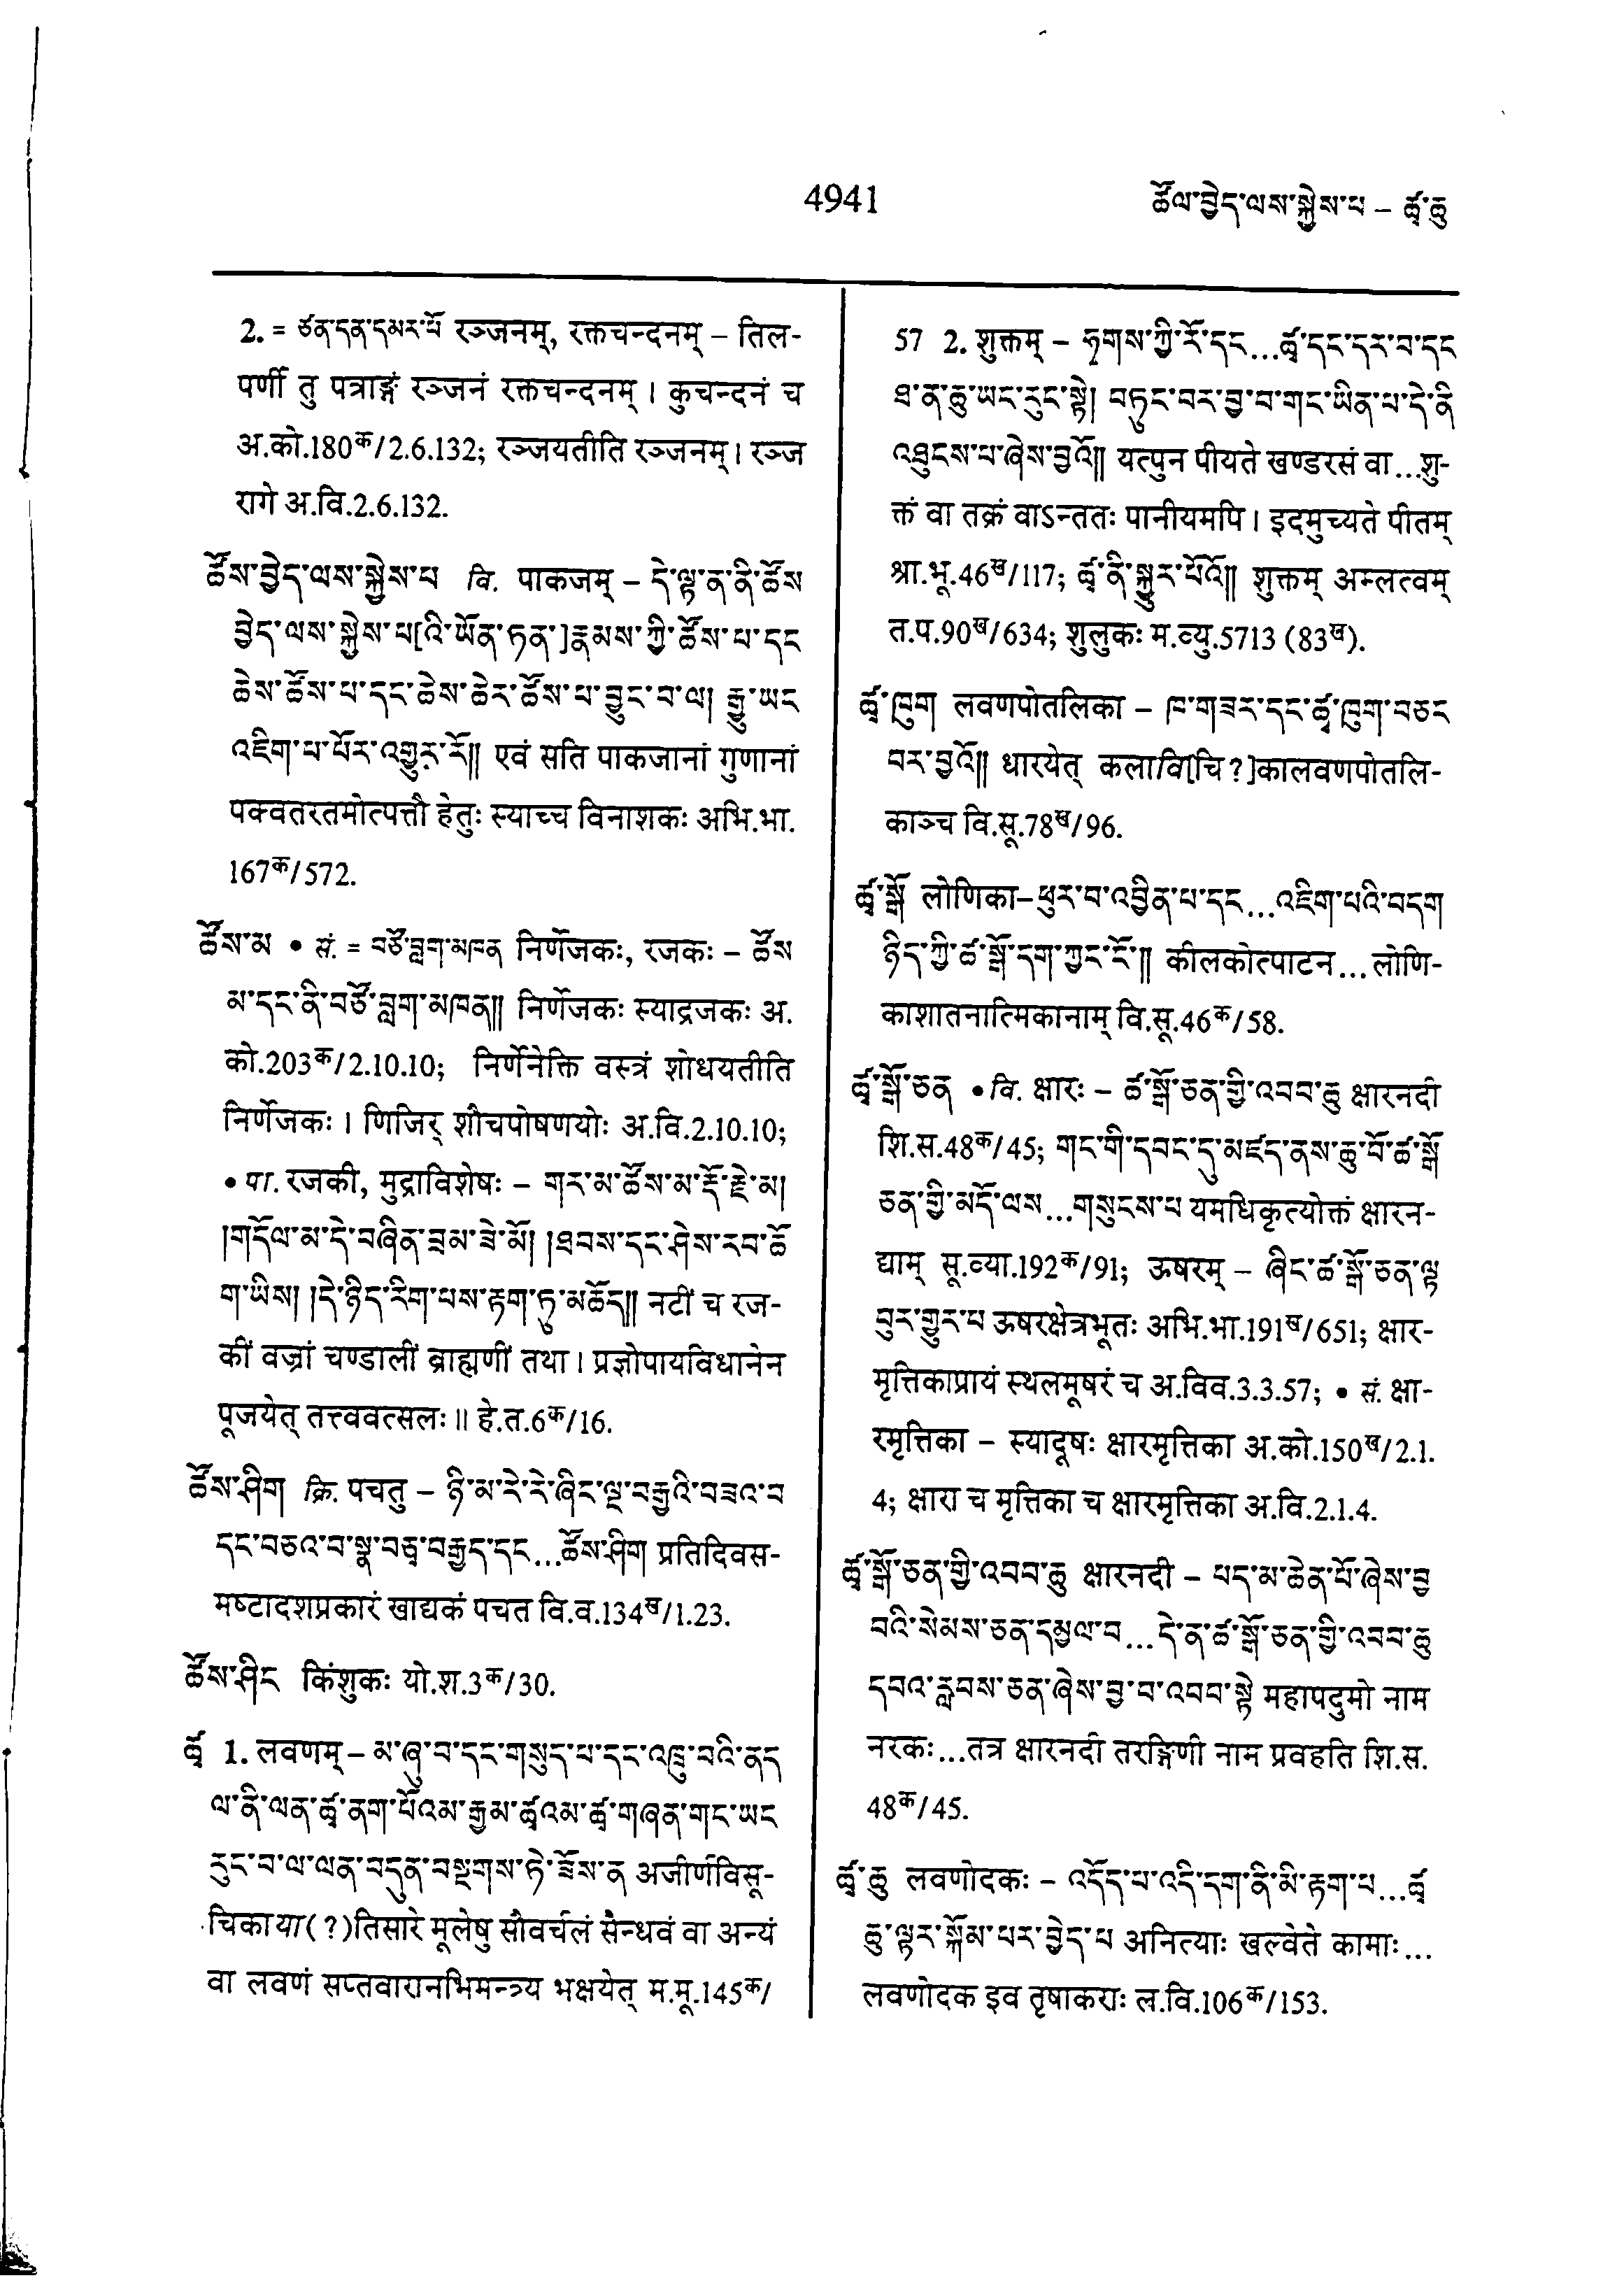 4941
ཚོལ་བྱེད་ལས་སྐྱེས་པ – ཚྭ་ཆུ
2. = ཙན་དན་དམར་པོ रञ्जनम्, रक्तचन्दनम् – तिल-
पर्णी तु पत्राङ्गं रञ्जनं रक्तचन्दनम् । कुचन्दनं च
अ.को.180क/2.6.132; रञ्जयतीति रञ्जनम् । रञ्ज
रागे अ.वि.2.6.132.
ཚོས་བྱེད་ལས་སྐྱེས་པ वि. पाकजम् – དེ་ལྟ་ན་ནི་ཚོས
བྱེད་ལས་སྐྱེས་པ[འི་ཡོན་ཏན་]རྣམས་ཀྱི་ཚོས་པ་དང
ཆེས་ཚོས་པ་དང་ཆེས་ཆེར་ཚོས་པ་བྱུང་བ་ལ། རྒྱུ་ཡང
འཇིག་པ་པོར་འགྱུར་རོ།། एवं सति पाकजानां गुणानां
पक्वतरतमोत्पत्तौ हेतुः स्याच्च विनाशकः अभि.भा.
167क/572.
ཚོས་མ • सं. = བཙོ་བླག་མཁན निर्णेजकः, रजकः – ཚོས
མ་དང་ནི་བཙོ་བླག་མཁན།། निर्णेजकः स्याद्रजकः अ.
को.203क/2.10.10; निर्णेनेक्ति वस्त्रं शोधयतीति
निर्णेजकः । णिजिर् शौचपोषणयोः अ.वि.2.10.10;
• पा. रजकी, मुद्राविशेषः – གར་མ་ཚོས་མ་རྡོ་རྗེ་མ།
།གདོལ་མ་དེ་བཞིན་བྲམ་ཟེ་མོ། །ཐབས་དང་ཤེས་རབ་ཆོ
ག་ཡིས། །དེ་ཉིད་རིག་པས་རྟག་ཏུ་མཆོད།། नटीं च रज-
कीं वज्रां चण्डालीं ब्राह्मणीं तथा । प्रज्ञोपायविधानेन
पूजयेत् तत्त्ववत्सलः ॥ हे.त.6क/16.
ཚོས་ཤིག क्रि. पचतु – ཉི་མ་རེ་རེ་ཞིང་ལྔ་བརྒྱའི་བཟའ་བ
དང་བཅའ་བ་སྣ་བཅྭ་བརྒྱད་དང...ཚོས་ཤིག प्रतिदिवस-
मष्टादशप्रकारं खाद्यकं पचत वि.व.134ख/1.23.
ཚོས་ཤིང किंशुकः यो.श.3क/30.
ཚྭ 1. लवणम् – མ་ཞུ་བ་དང་གསུད་པ་དང་འཁྲུ་བའི་ནད
ལ་ནི་ལན་ཚྭ་ནག་པོའམ་རྒྱམ་ཚྭའམ་ཚྭ་གཞན་གང་ཡང
རུང་བ་ལ་ལན་བདུན་བསྔགས་ཏེ་ཟོས་ན अजीर्णविसू-
चिकाया(?)तिसारे मूलेषु सौवर्चलं सैन्धवं वा अन्यं
वा लवणं सप्तवारानभिमन्त्र्य भक्षयेत् म.मू.145क/
57 2. शुक्तम् – ཧྭགས་ཀྱི་རོ་དང...ཚྭ་དང་དར་བ་དང
ཐ་ན་ཆུ་ཡང་རུང་སྟེ། བཏུང་བར་བྱ་བ་གང་ཡིན་པ་དེ་ནི
འཐུངས་པ་ཞེས་བྱའོ།། यत्पुन पीयते खण्डरसं वा...शु-
क्तं वा तक्रं वाऽन्ततः पानीयमपि । इदमुच्यते पीतम्
श्रा.भू.46ख/117; ཚྭ་ནི་སྐྱུར་པོའོ།། शुक्तम् अम्लत्वम्
त.प.90ख/634; शुलुकः म.व्यु.5713 (83ख).
ཚྭ་ཁུག लवणपोतलिका – ཁ་གཟར་དང་ཚྭ་ཁུག་བཅང
བར་བྱའོ།། धारयेत् कलावि[चि ?]कालवणपोतलि-
काञ्च वि.सू.78ख/96.
ཚྭ་སྒོ लोणिका – ཕུར་བ་འབྱིན་པ་དང...འཇིག་པའི་བདག
ཉིད་ཀྱི་ཚ་སྒོ་དག་ཀྱང་ངོ་།། कीलकोत्पाटन...लोणि-
काशातनात्मिकानाम् वि.सू.46क/58.
ཚྭ་སྒོ་ཅན • वि. क्षारः – ཚ་སྒོ་ཅན་གྱི་འབབ་ཆུ क्षारनदी
शि.स.48क/45; གང་གི་དབང་དུ་མཛད་ནས་ཆུ་བོ་ཚ་སྒོ
ཅན་གྱི་མདོ་ལས...གསུངས་པ यमधिकृत्योक्तं क्षारन-
द्याम् सू.व्या.192क/91; ऊषरम् – ཞིང་ཚ་སྒོ་ཅན་ལྟ
བུར་གྱུར་པ ऊषरक्षेत्रभूतः अभि.भा.191ख/651; क्षार-
मृत्तिकाप्रायं स्थलमूषरं च अ.विव.3.3.57; • सं. क्षा-
रमृत्तिका – स्यादूषः क्षारमृत्तिका अ.को.150ख/2.1.
4; क्षारा च मृत्तिका च क्षारमृत्तिका अ.वि.2.1.4.
ཚྭ་སྒོ་ཅན་གྱི་འབབ་ཆུ क्षारनदी – པད་མ་ཆེན་པོ་ཞེས་བྱ
བའི་སེམས་ཅན་དམྱལ་བ...དེ་ན་ཚ་སྒོ་ཅན་གྱི་འབབ་ཆུ
དབའ་རླབས་ཅན་ཞེས་བྱ་བ་འབབ་སྟེ महापदुमो नाम
नरकः...तत्र क्षारनदी तरङ्गिणी नाम प्रवहति शि.स.
48क/45.
ཚྭ་ཆུ लवणोदकः – འདོད་པ་འདི་དག་ནི་མི་རྟག་པ...ཚྭ
ཆུ་ལྟར་སྐོམ་པར་བྱེད་པ अनित्याः खल्वेते कामाः...
लवणोदक इव तृषाकराः ल.वि.106क/153.